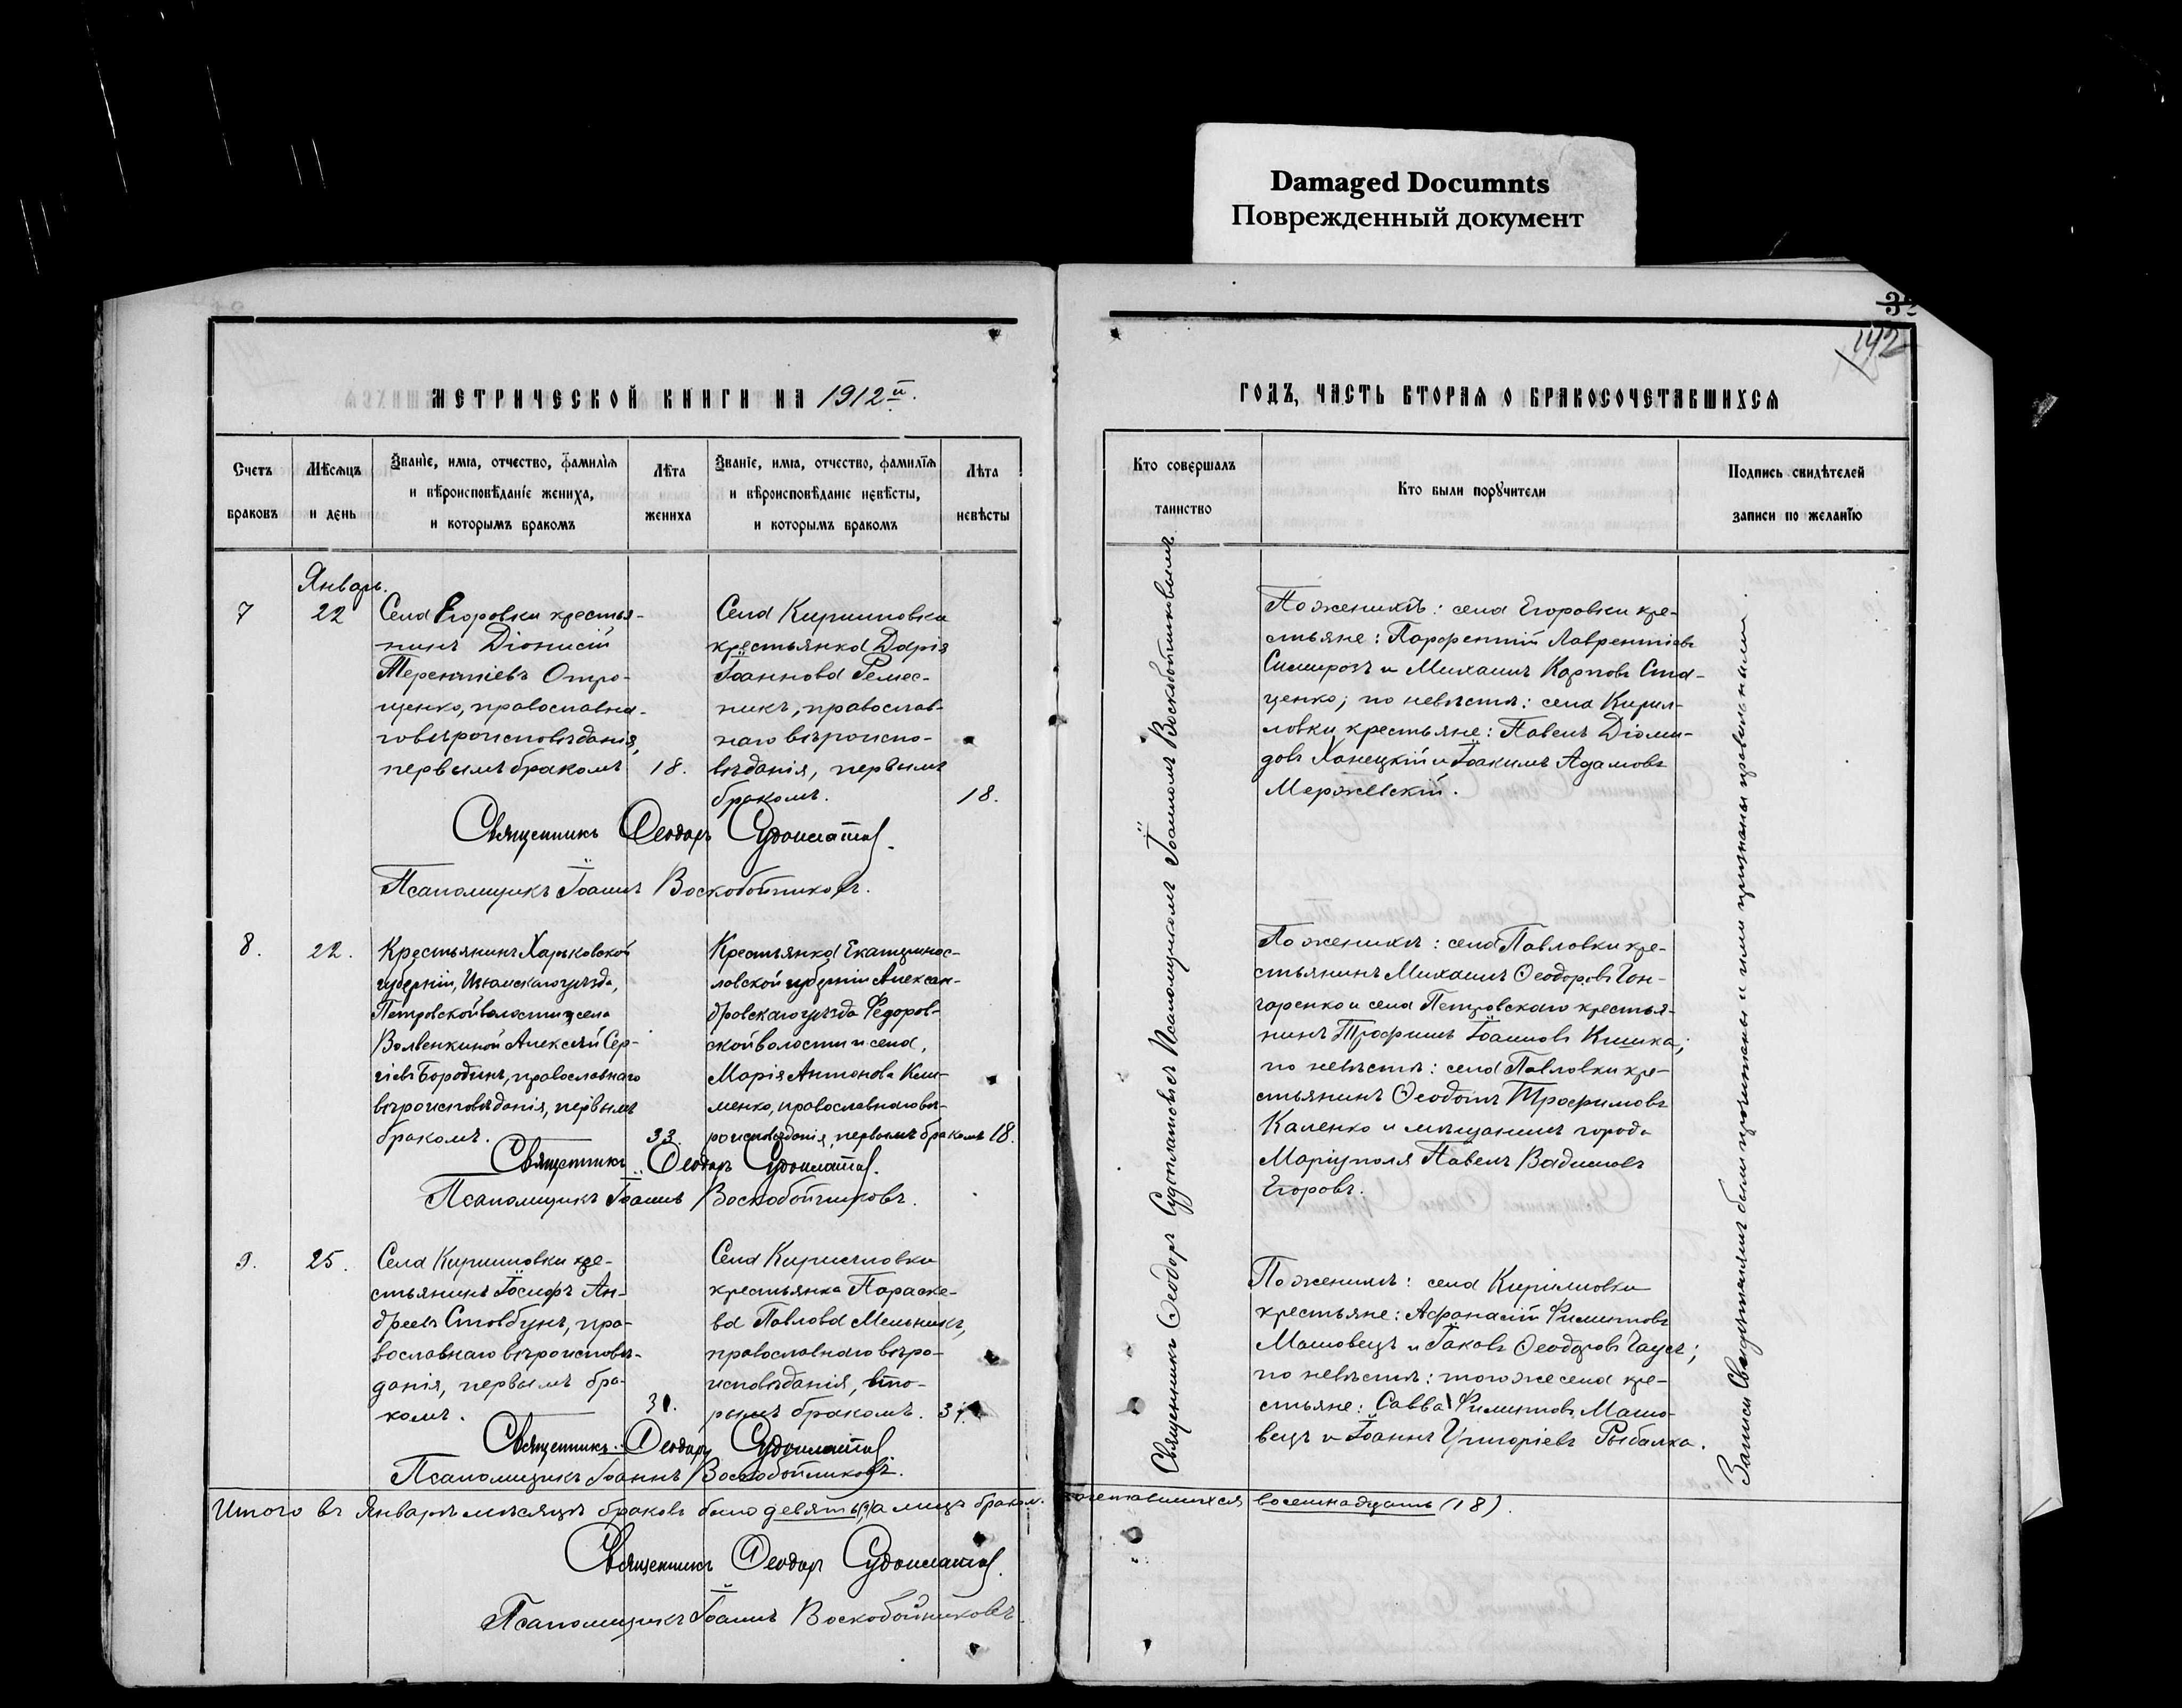 Damaged Documnts
Поврежденный документ
142
МЕТРИЧЕСКОЙ КНИГИ НА 1912й.
ГОДЪ, ЧАСТЬ ВТОРАЯ О БРАКОСОЧЕТАВШИХСЯ
Счетъ
браковъ
Мѣсяцъ
и день
Званіе, имя, отчество, фамилія
и вѣроисповѣданіе жениха,
и которымъ бракомъ
Лѣта
жениха
Званіе, имя, отчество, фамилія
и вѣроисповѣданіе невѣсты,
и которымъ бракомъ
Лѣта
невѣсты
Кто совершалъ
таинство
Кто были поручители
Подпись свидѣтелей
записи по желанію
Январь.
7
22
Села Егоровки крестья-
нинъ Діонисій
Терентіевъ Отро-
щенко, православна-
го вѣроисповѣданія,
первымъ бракомъ
18.
Села Кирилловки
крестьянка Дарія
Іоаннова Ремес-
никъ, православ-
наго вѣроиспо-
вѣданія, первымъ
бракомъ.
18.
По женихѣ: села Егоровки кре-
стьяне: Парфентій Лаврентіевъ
и Михаилъ Карповъ Ста-
ценко; по невѣстѣ: села Кирил-
ловки крестьяне: Павелъ Діоми-
довъ Ханецкій и Іоакимъ Адамовъ
Мержевскій.
Священникъ Ѳеодоръ Судоплатов
Псаломщикъ Іоаннъ Воскобойниковъ.
8.
22.
Крестьянинъ Харьковской
губерніи, Изюмскаго уѣзда,
Петровской волости, села
Волвенкиной Алексѣй Сер-
гіевъ Бородинъ, православнаго
вѣроисповѣданія, первымъ
бракомъ.
33.
Крестьянка Екатеринос-
лавской губерніи Алексан-
дровскаго уѣзда Федоров-
ской волости и села,
Марія Антонова Кли-
менко, православнаго вѣ-
роисповѣданія, первымъ бракомъ
18.
По женихѣ: села Павловки кре-
стьянинъ Михаилъ Ѳеодоровъ Гон-
чаренко и села Петровскаго крестья-
нинъ Трофимъ Іоанновъ Кишка;
по невѣстѣ: села Павловки кре-
стьянинъ Ѳеодотъ Трофимовъ
Каленко и мѣщанинъ города
Маріуполя Павелъ Вадимовъ
Егоровъ.
Священникъ Ѳеодоръ Судоплатов.
Псаломщикъ Іоаннъ Воскобойниковъ.
9.
25.
Села Кирилловки кре-
стьянинъ Іосифъ Ан-
дреевъ Столбунъ, пра-
вославнаго вѣроисповѣ-
данія, первымъ бра-
комъ.
31.
Села Кирилловки
крестьянка Параске-
ва Павлова Мельникъ,
православнаго вѣро-
исповѣданія, вто-
рымъ бракомъ.
По женихѣ: села Кирилловки
крестьяне: Афанасій Филипповъ
Машовецъ и Іаковъ Ѳеодоровъ Гаусъ;
по невѣстѣ: того же села кре-
стьяне: Савва Филипповъ Машо-
вецъ и Іоаннъ Григоріевъ Рыбалка.
Священникъ Ѳеодоръ Судоплатов
Псаломщикъ Іоаннъ Воскобойниковъ.
Священникъ Ѳеодоръ Судоплатовъ Псаломщикомъ Іоанномъ Воскобойниковымъ.
Записи свидѣтелямъ были прочитаны и ими признаны правильными.
Итого въ Январѣ мѣсяцѣ браковъ было девять (9) а лицъ браком. сочетавшихся восемнадцать (18).
Священникъ Ѳеодоръ Судоплатов.
Псаломщикъ Іоаннъ Воскобойниковъ